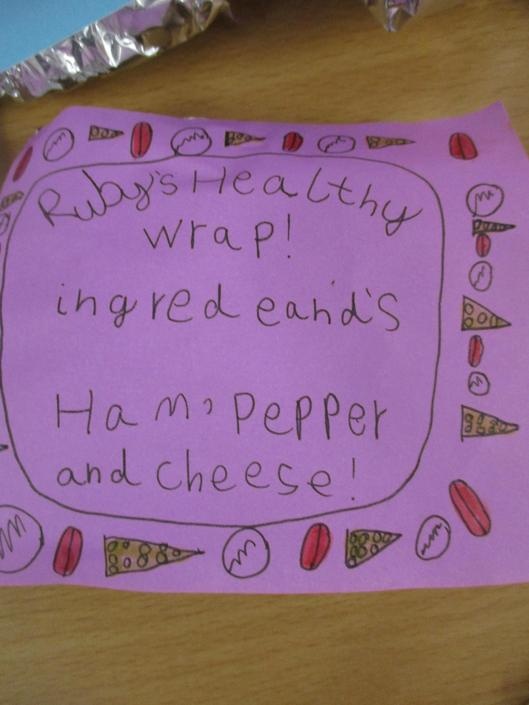 Ruby's Healthy
wrap!
ingredeand's
Ham, Pepper
and cheese!